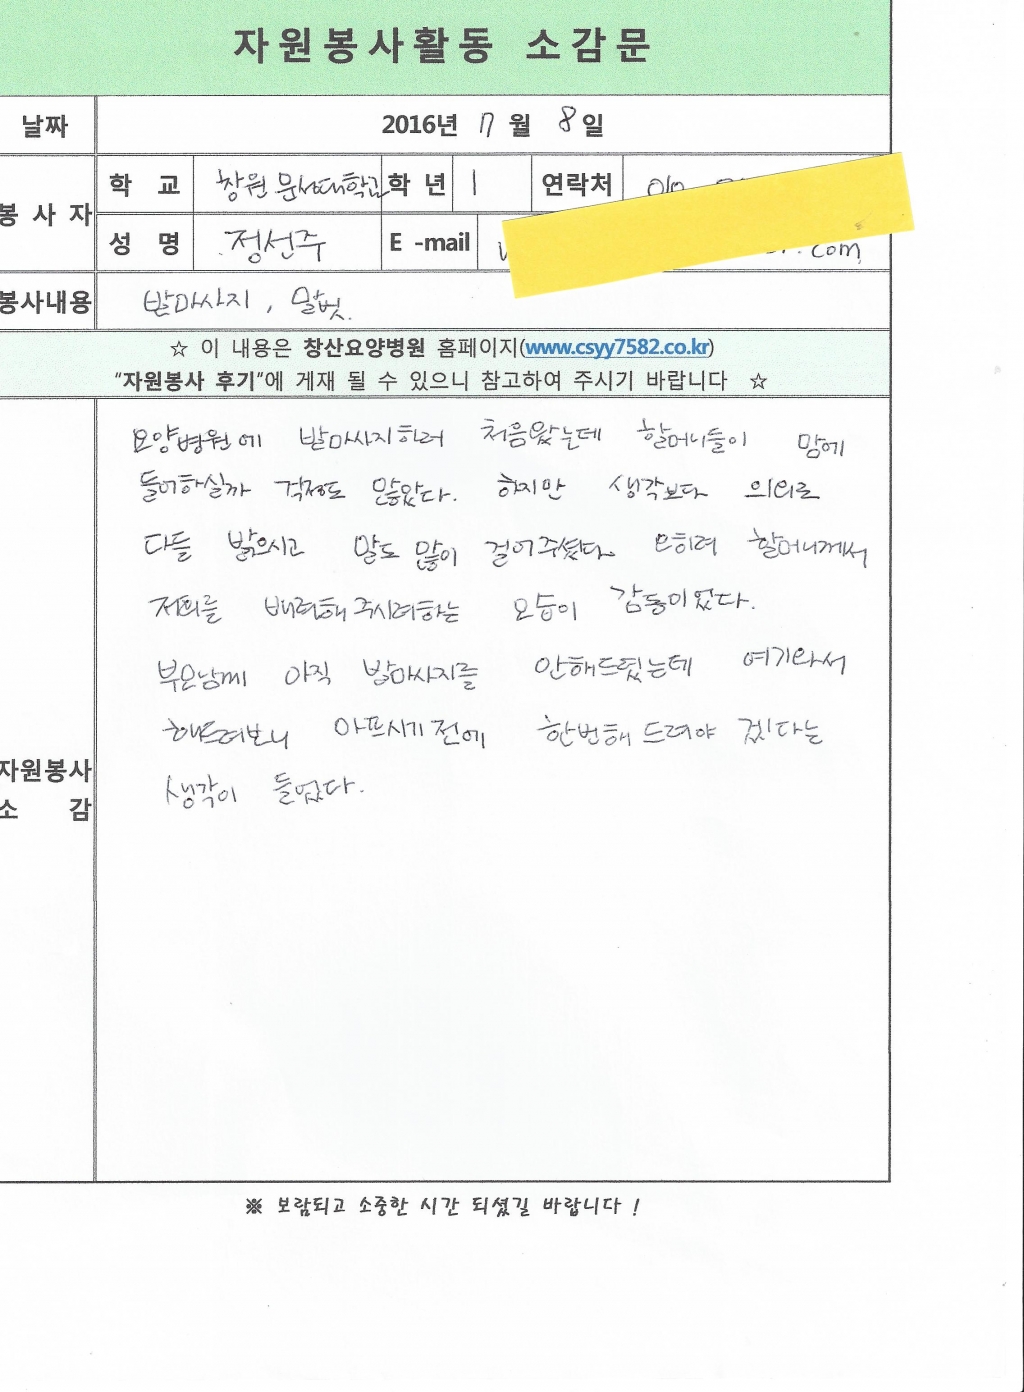 자원봉사활동 소감문
날짜 2016년 7월 8일
봉사자 학교 창원문성대학교 학년 1 연락처 010
성명 정선주 E-mail .com
봉사내용 발마사지, 말벗.
☆ 이 내용은 창산요양병원 홈페이지(www.csyy7582.co.kr)
"자원봉사 후기"에 게재 될 수 있으니 참고하여 주시기 바랍니다 ☆
자원봉사 소감
요양병원에 발마사지하러 처음왔는데 할머니들이 맘에
들어하실까 걱정도 많았다. 하지만 생각보다 의외로
다들 밝으시고 말도 많이 걸어주셨다. 오히려 할머니께서
저희를 배려해주시려하는 모습이 감동이었다.
부모님께 아직 발마사지를 안해드렸는데 여기와서
해드려보니 아프시기전에 한번해드려야 겠다는
생각이 들었다.
※ 보람되고 소중한 시간 되셨길 바랍니다 !